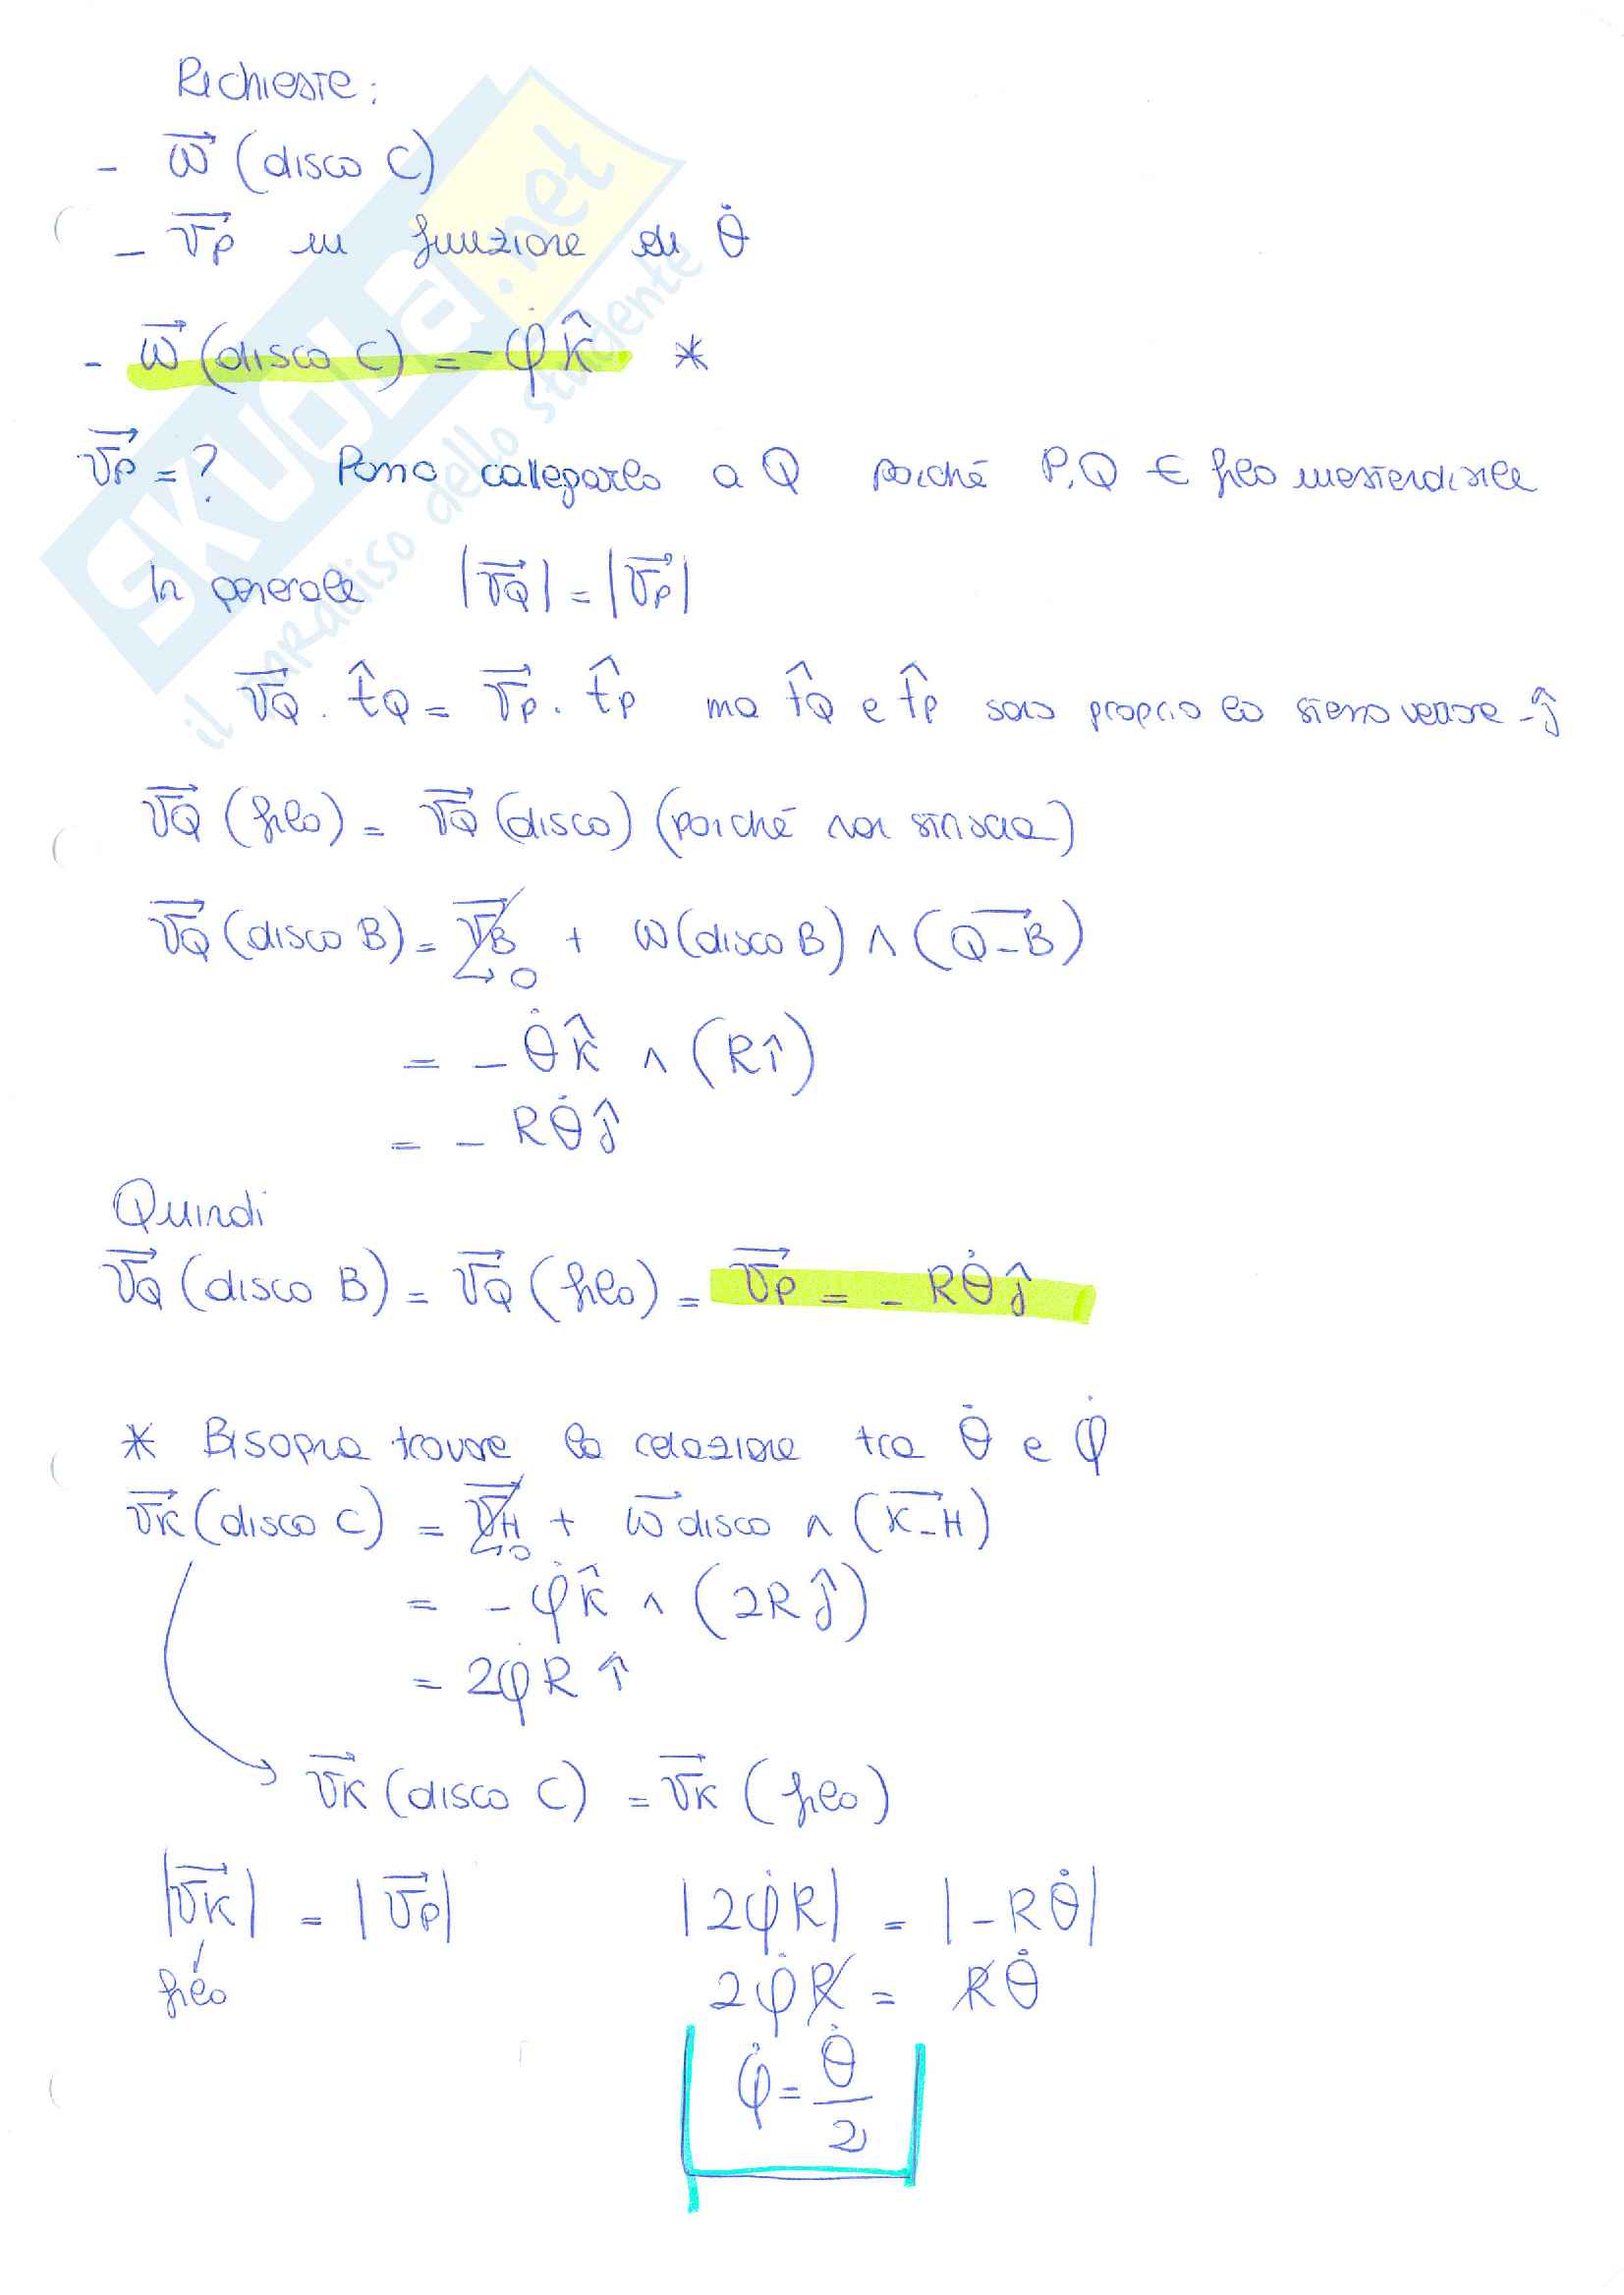 Richieste:
- ω⃗ (disco C)
- v⃗P in funzione di θ̇
- ω⃗ (disco C) = -φ̇ k̂ *
v⃗P = ? Posso collegarlo a Q poiché P,Q ∈ filo inestendibile
In generale |v⃗Q| = |v⃗P|
v⃗Q · t̂Q = v⃗P · t̂P ma t̂Q e t̂P sono proprio lo stesso versore -ĵ
v⃗Q (filo) = v⃗Q (disco) (poiché non striscia)
v⃗Q (disco B) = v⃗B + ω (disco B) ∧ (Q-B)
→ 0
= - θ̇ k̂ ∧ (R î)
= - R θ̇ ĵ
Quindi
v⃗Q (disco B) = v⃗Q (filo) = v⃗P = - R θ̇ ĵ
* Bisogna trovare la relazione tra θ̇ e φ̇
v⃗K (disco C) = v⃗H + ω⃗ disco ∧ (K-H)
→ 0
= - φ̇ k̂ ∧ (2R ĵ)
= 2φ̇ R î
v⃗K (disco C) = v⃗K (filo)
|v⃗K| = |v⃗P| |2φ̇R| = |-Rθ̇|
filo 2φ̇R = Rθ̇
φ̇ = θ̇/2
SKUOLA.net
il paradiso dello studente